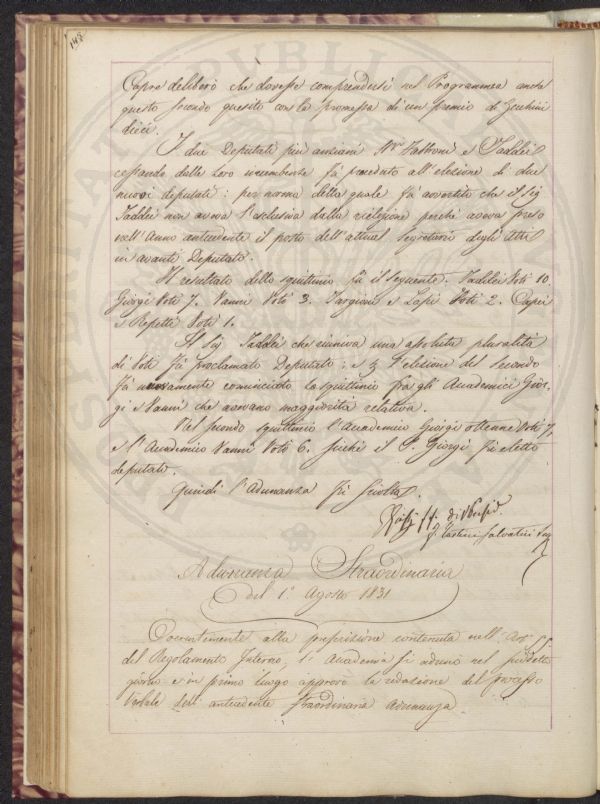 148
Capro deliberò che dovesse comprendersi nel Programma anche
questo secondo quesito con la promessa di un premio di Zecchini
dieci.
I due Deputati più anziani Sr. Fabbroni e Taddei
cessando dalle loro incumbenze fù proceduto all'elezione di due
nuovi deputati: per norma della quale fù avvertito che il Sig
Taddei non aveva l'esclusiva dalla rielezione perchè aveva preso
nell'Anno antecedente il posto dell'attual Segretario degli Atti
in avanti Deputato.
Il resultato dello squittinio fù il seguente. Taddei Voti 10
Giorgi Voti 7. Vannì Voti 3. Targioni e Lapi Voti 2. Capei
e Repetti Voti 1.
Il Sig Taddei che riuniva una assoluta pluralità
di Voti fù proclamato Deputato: e l'elezione del Secondo
fù nuovamente cominciato lo squittinio fra gli Accademici Gior-
gi e Vanni che avevano maggiorità relativa.
Nel secondo squittinio l'Accademico Giorgi ottenne Voti 7,
e l'Accademico Vanni Voti 6. sicchè il S. Giorgi fù eletto
deputato.
Quindi l'Adunanza fù sciolta.
Tartini Salvatici
Adunanza Straordinaria
del 1° Agosto 1831
Coerentemente alla prescrizione contenuta nell'Art
del Regolamento Interno, l'Accademia si adunò nel suddetto
giorno e in primo luogo approvò la redazione del processo
Verbale dell'antecedente straordinaria adunanza